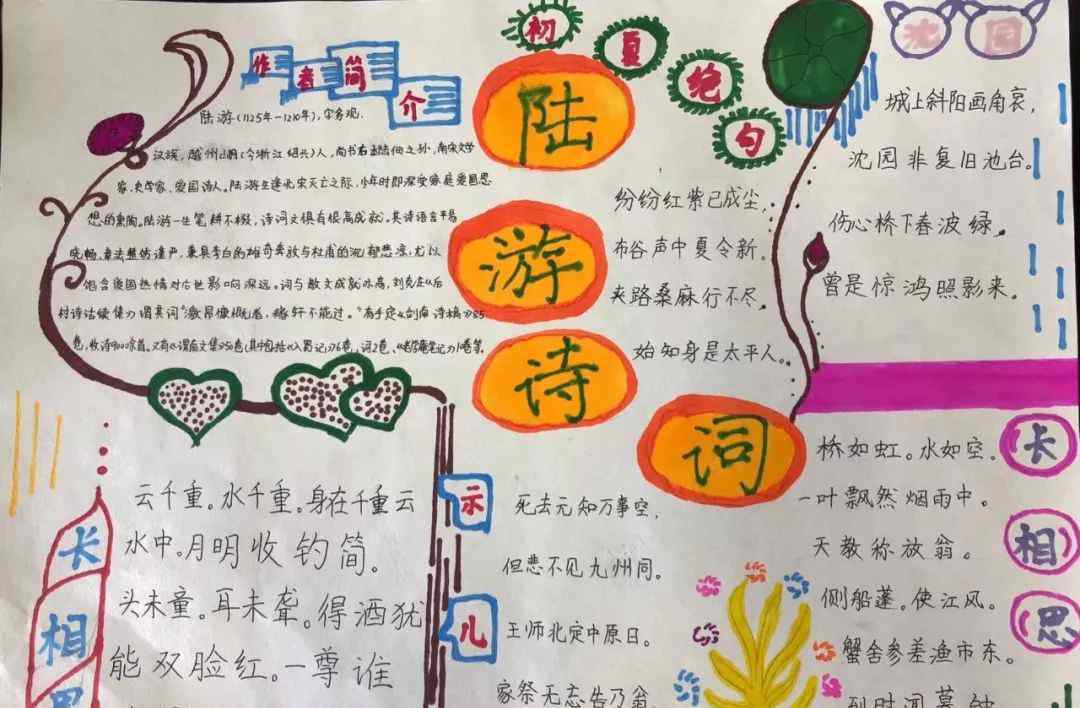 作者简介
陆游(1125年—1210年),字务观.
汉族,越州山阴(今浙江绍兴)人,尚书右丞陆佃之孙,南宋文学
家、史学家、爱国诗人。陆游生逢北宋灭亡之际,少年时即深受家庭爱国思
想的熏陶。陆游一生笔耕不辍,诗词文俱有很高成就。其诗语言平易
晓畅、章法整饬谨严,兼具李白的雄奇奔放与杜甫的沉郁悲凉,尤以
饱含爱国热情对后世影响深远。词与散文成就亦高,刘克庄《后
村诗话续集》谓其词"激昂慷慨者,稼轩不能过。"有手定《剑南诗稿》85
卷,收诗9000余首。又有《渭南文集》50卷(其中包括《入蜀记》6卷,词2卷、《老学庵笔记》10卷等。
陆游诗词
初夏绝句
纷纷红紫已成尘,
布谷声中夏令新。
夹路桑麻行不尽,
始知身是太平人。
沈园
城上斜阳画角哀,
沈园非复旧池台。
伤心桥下春波绿,
曾是惊鸿照影来。
长相思
云千重。水千重。身在千重云
水中。月明收钓筒。
头未童。耳未聋。得酒犹
能双脸红。一尊谁
示儿
死去元知万事空,
但悲不见九州同。
王师北定中原日。
家祭无忘告乃翁。
长相思
桥如虹。水如空。
一叶飘然烟雨中。
天教称放翁。
侧船蓬。使江风。
蟹舍参差渔市东。
到时闻暮钟